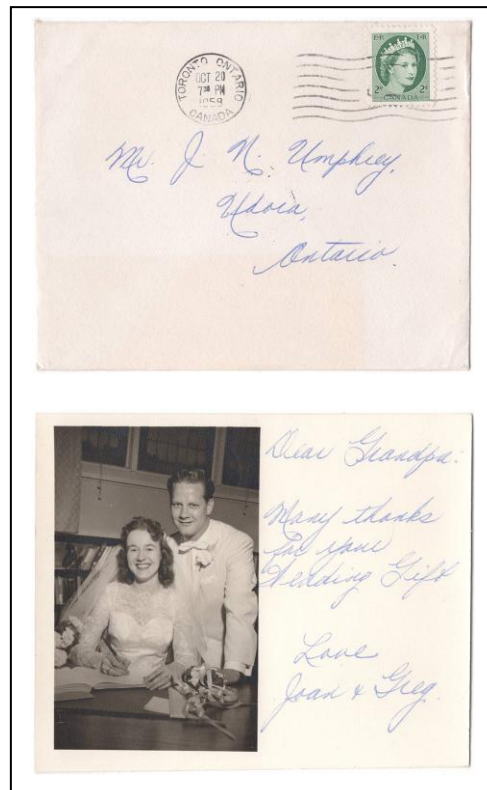 TORONTO ONTARIO
OCT 20
7 30 PM
1958
CANADA
E II R E II R
2¢ 2¢
CANADA
Mr. J. N. Umphrey,
Udora,
Ontario.
Dear Grandpa:
Many thanks
for your
Wedding Gift
Love
Joan & Greg.